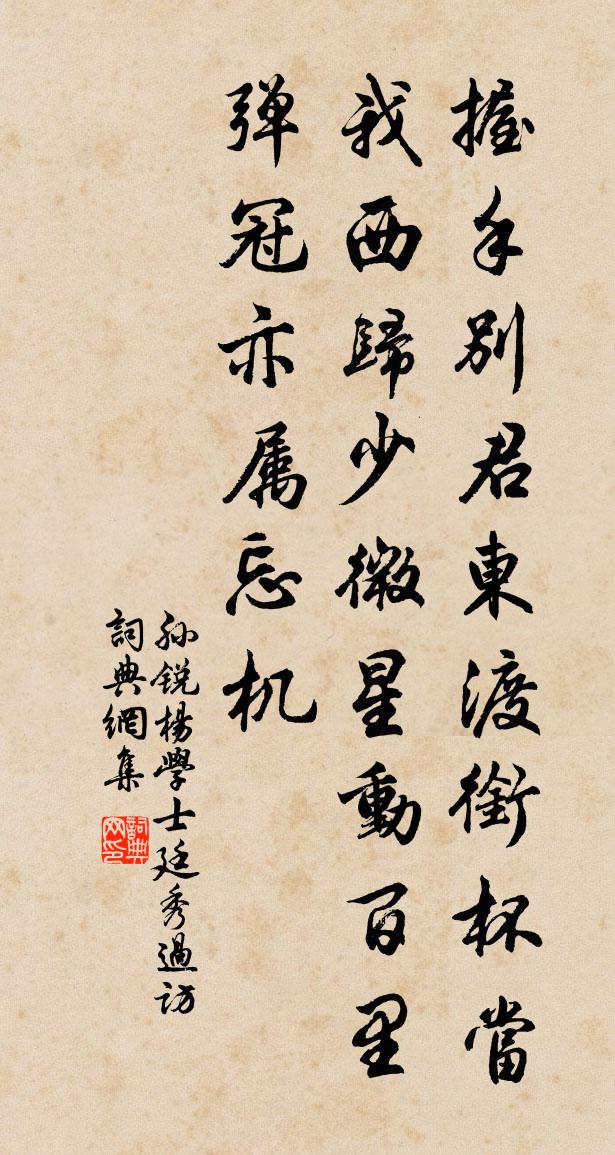 握手別君東渡銜杯當
我西歸少微星動百里
弹冠亦属忘机
孙銳楊學士廷秀過訪
詞典網集
詞典网印